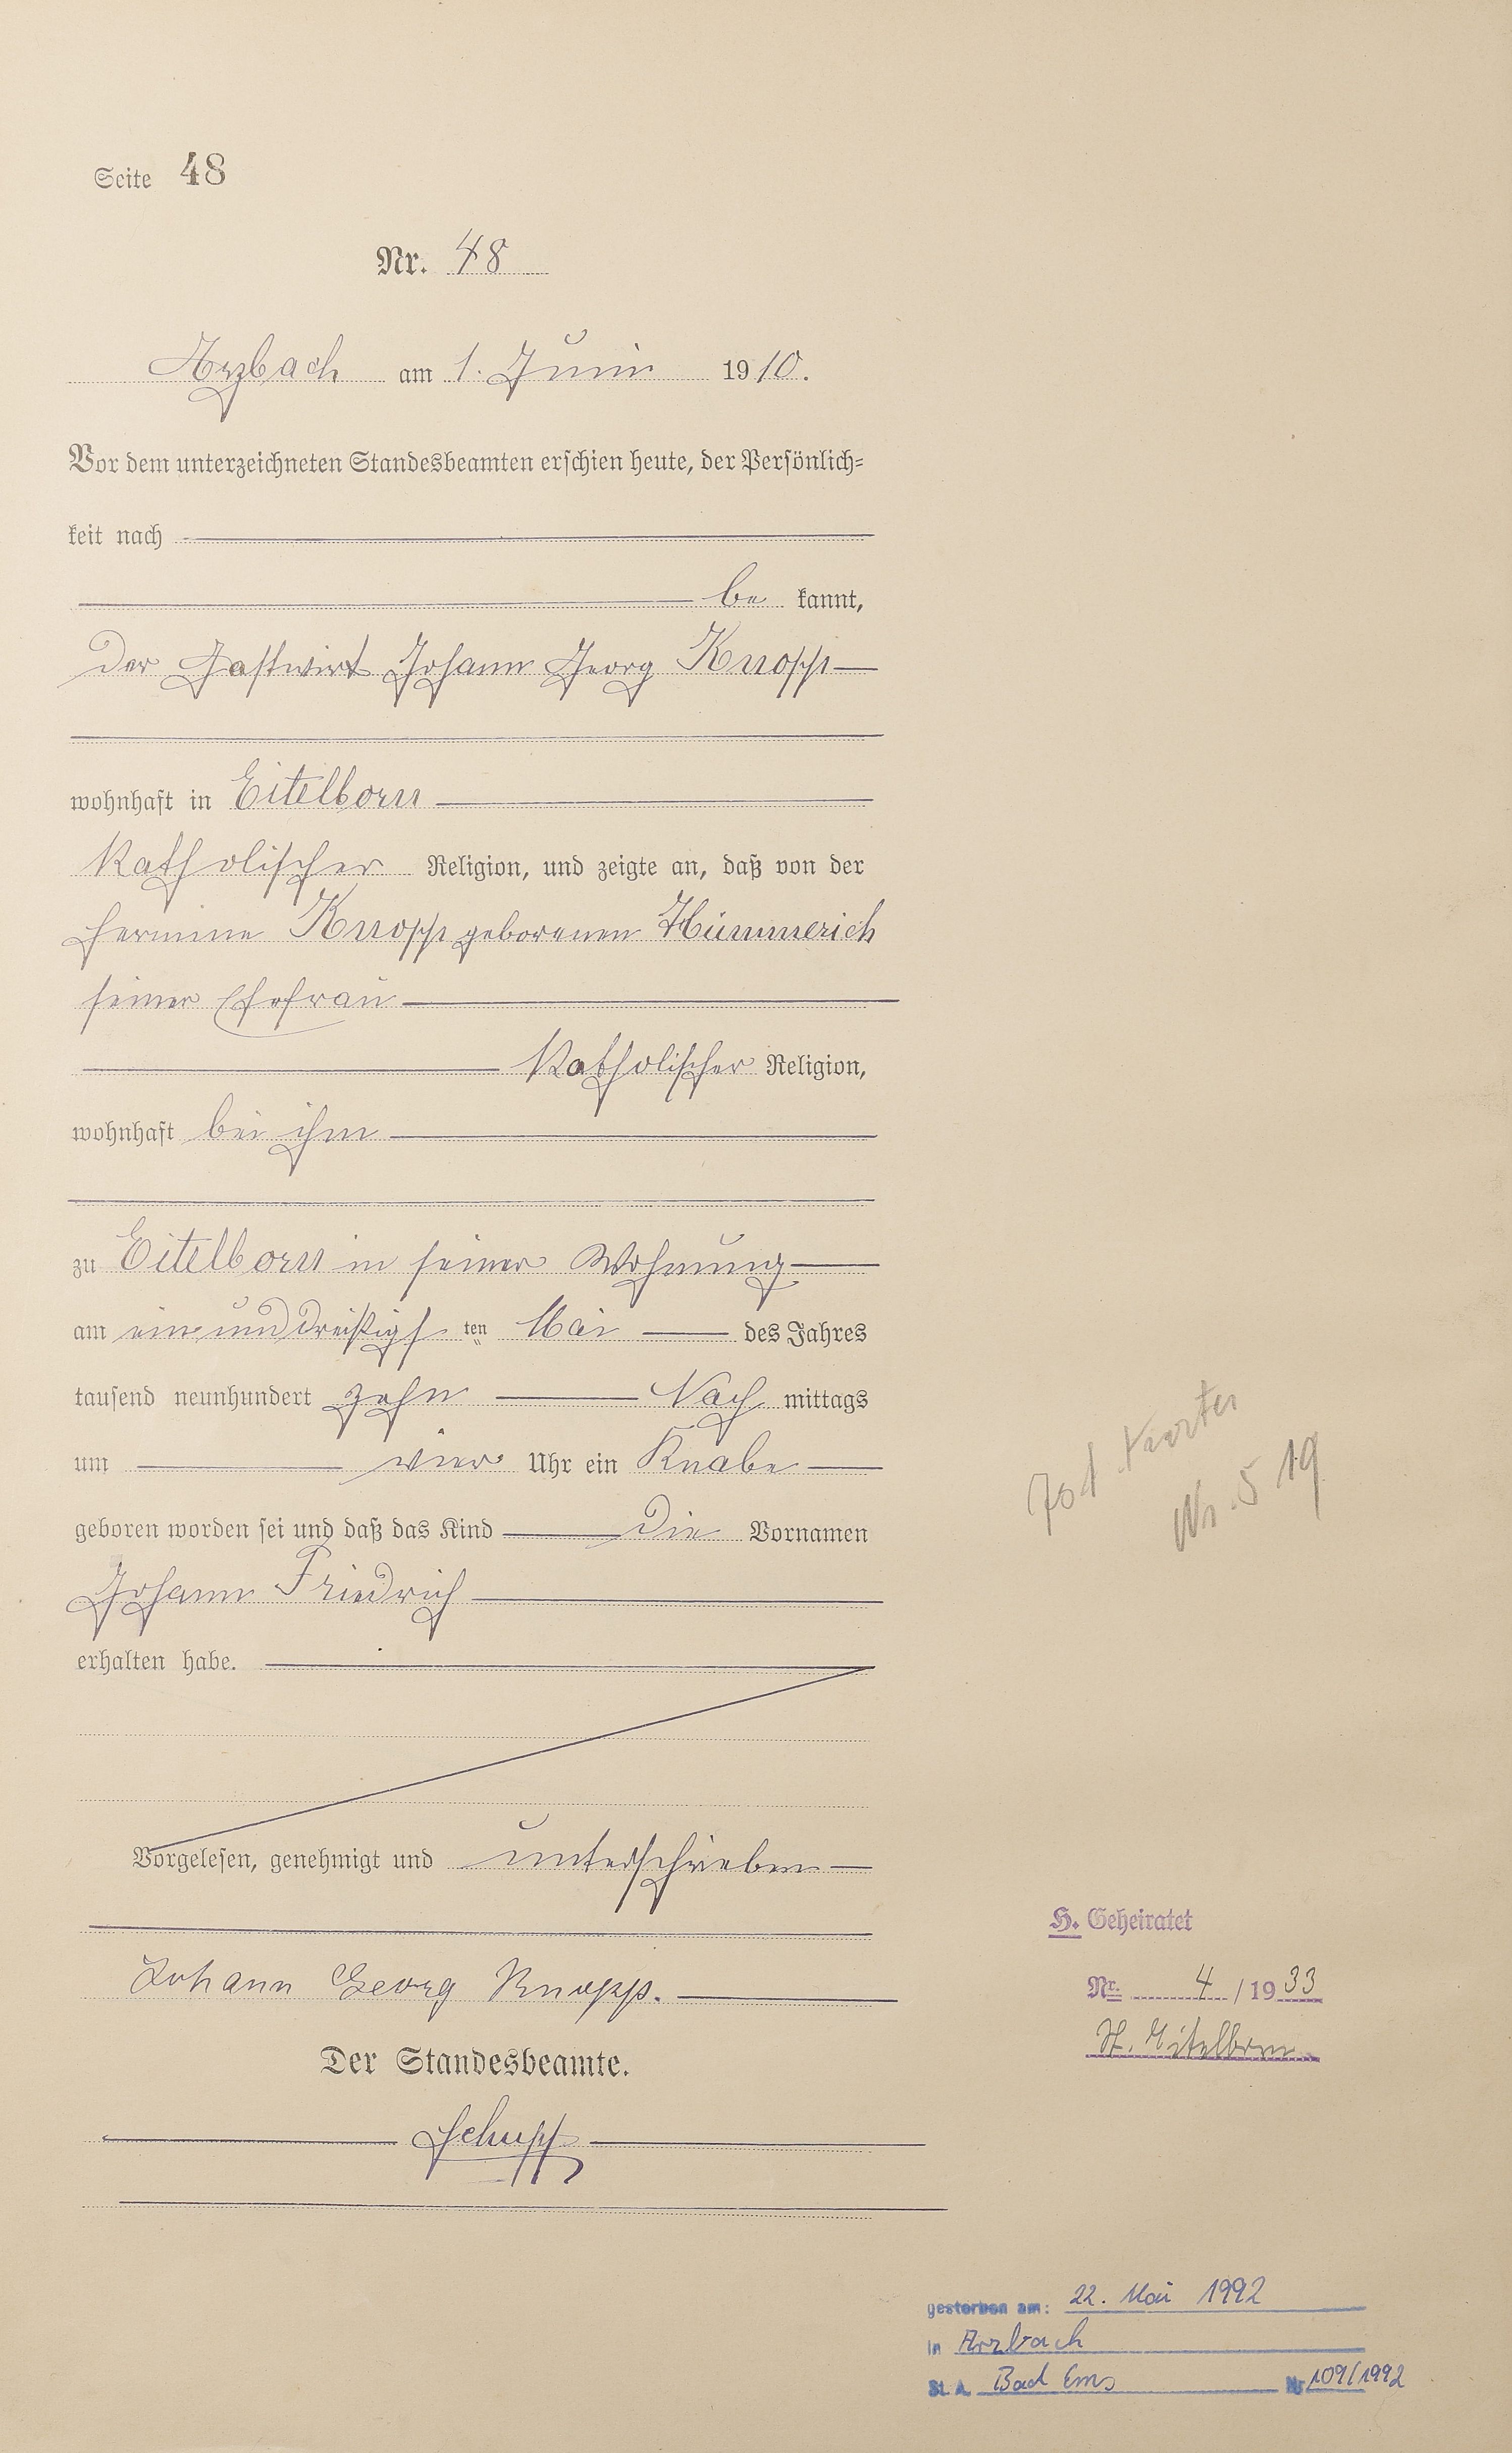 Seite 48
Nr. 48
Arzbach am 1. Juni 1910.
Vor dem unterzeichneten Standesbeamten erschien heute, der Persönlich=
keit nach
be kannt,
der Gastwirt Johann Georg Knopp
wohnhaft in Eitelborn
Katholischer Religion, und zeigte an, daß von der
Hermine Knopp geborenen Hümmerich
seiner Ehefrau
Katholischer Religion,
wohnhaft bei ihm
zu Eitelborn in seiner Wohnung
am einunddreißigs ten Mai des Jahres
tausend neunhundert zehn Nach mittags
um vier Uhr ein Knabe
geboren worden sei und daß das Kind die Vornamen
Johann Friedrich
erhalten habe.
Vorgelesen, genehmigt und unterschrieben
Johann Georg Knopp.
Der Standesbeamte.
Schupp
Nr. 519
H. Geheiratet
Nr. 4/1933
St. Eitelborn
gestorben am: 22. Mai 1992
in Arzbach
St. A. Bad Ems Nr 109/1992